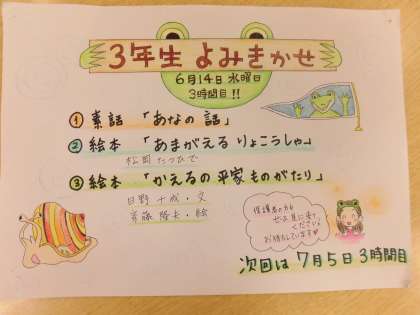 3年生 よみきかせ
6月14日 水曜日
3時間目!!
① 素話 「あなの話」
② 絵本 「あまがえる りょこうしゃ」
松岡 たつひで
③ 絵本 「かえるの平家 ものがたり」
日野 十成・文
斉藤 隆夫・絵
保護者の方も
ぜひ見に来て
ください。
お待ちしています♥
次回は 7月5日 3時間目